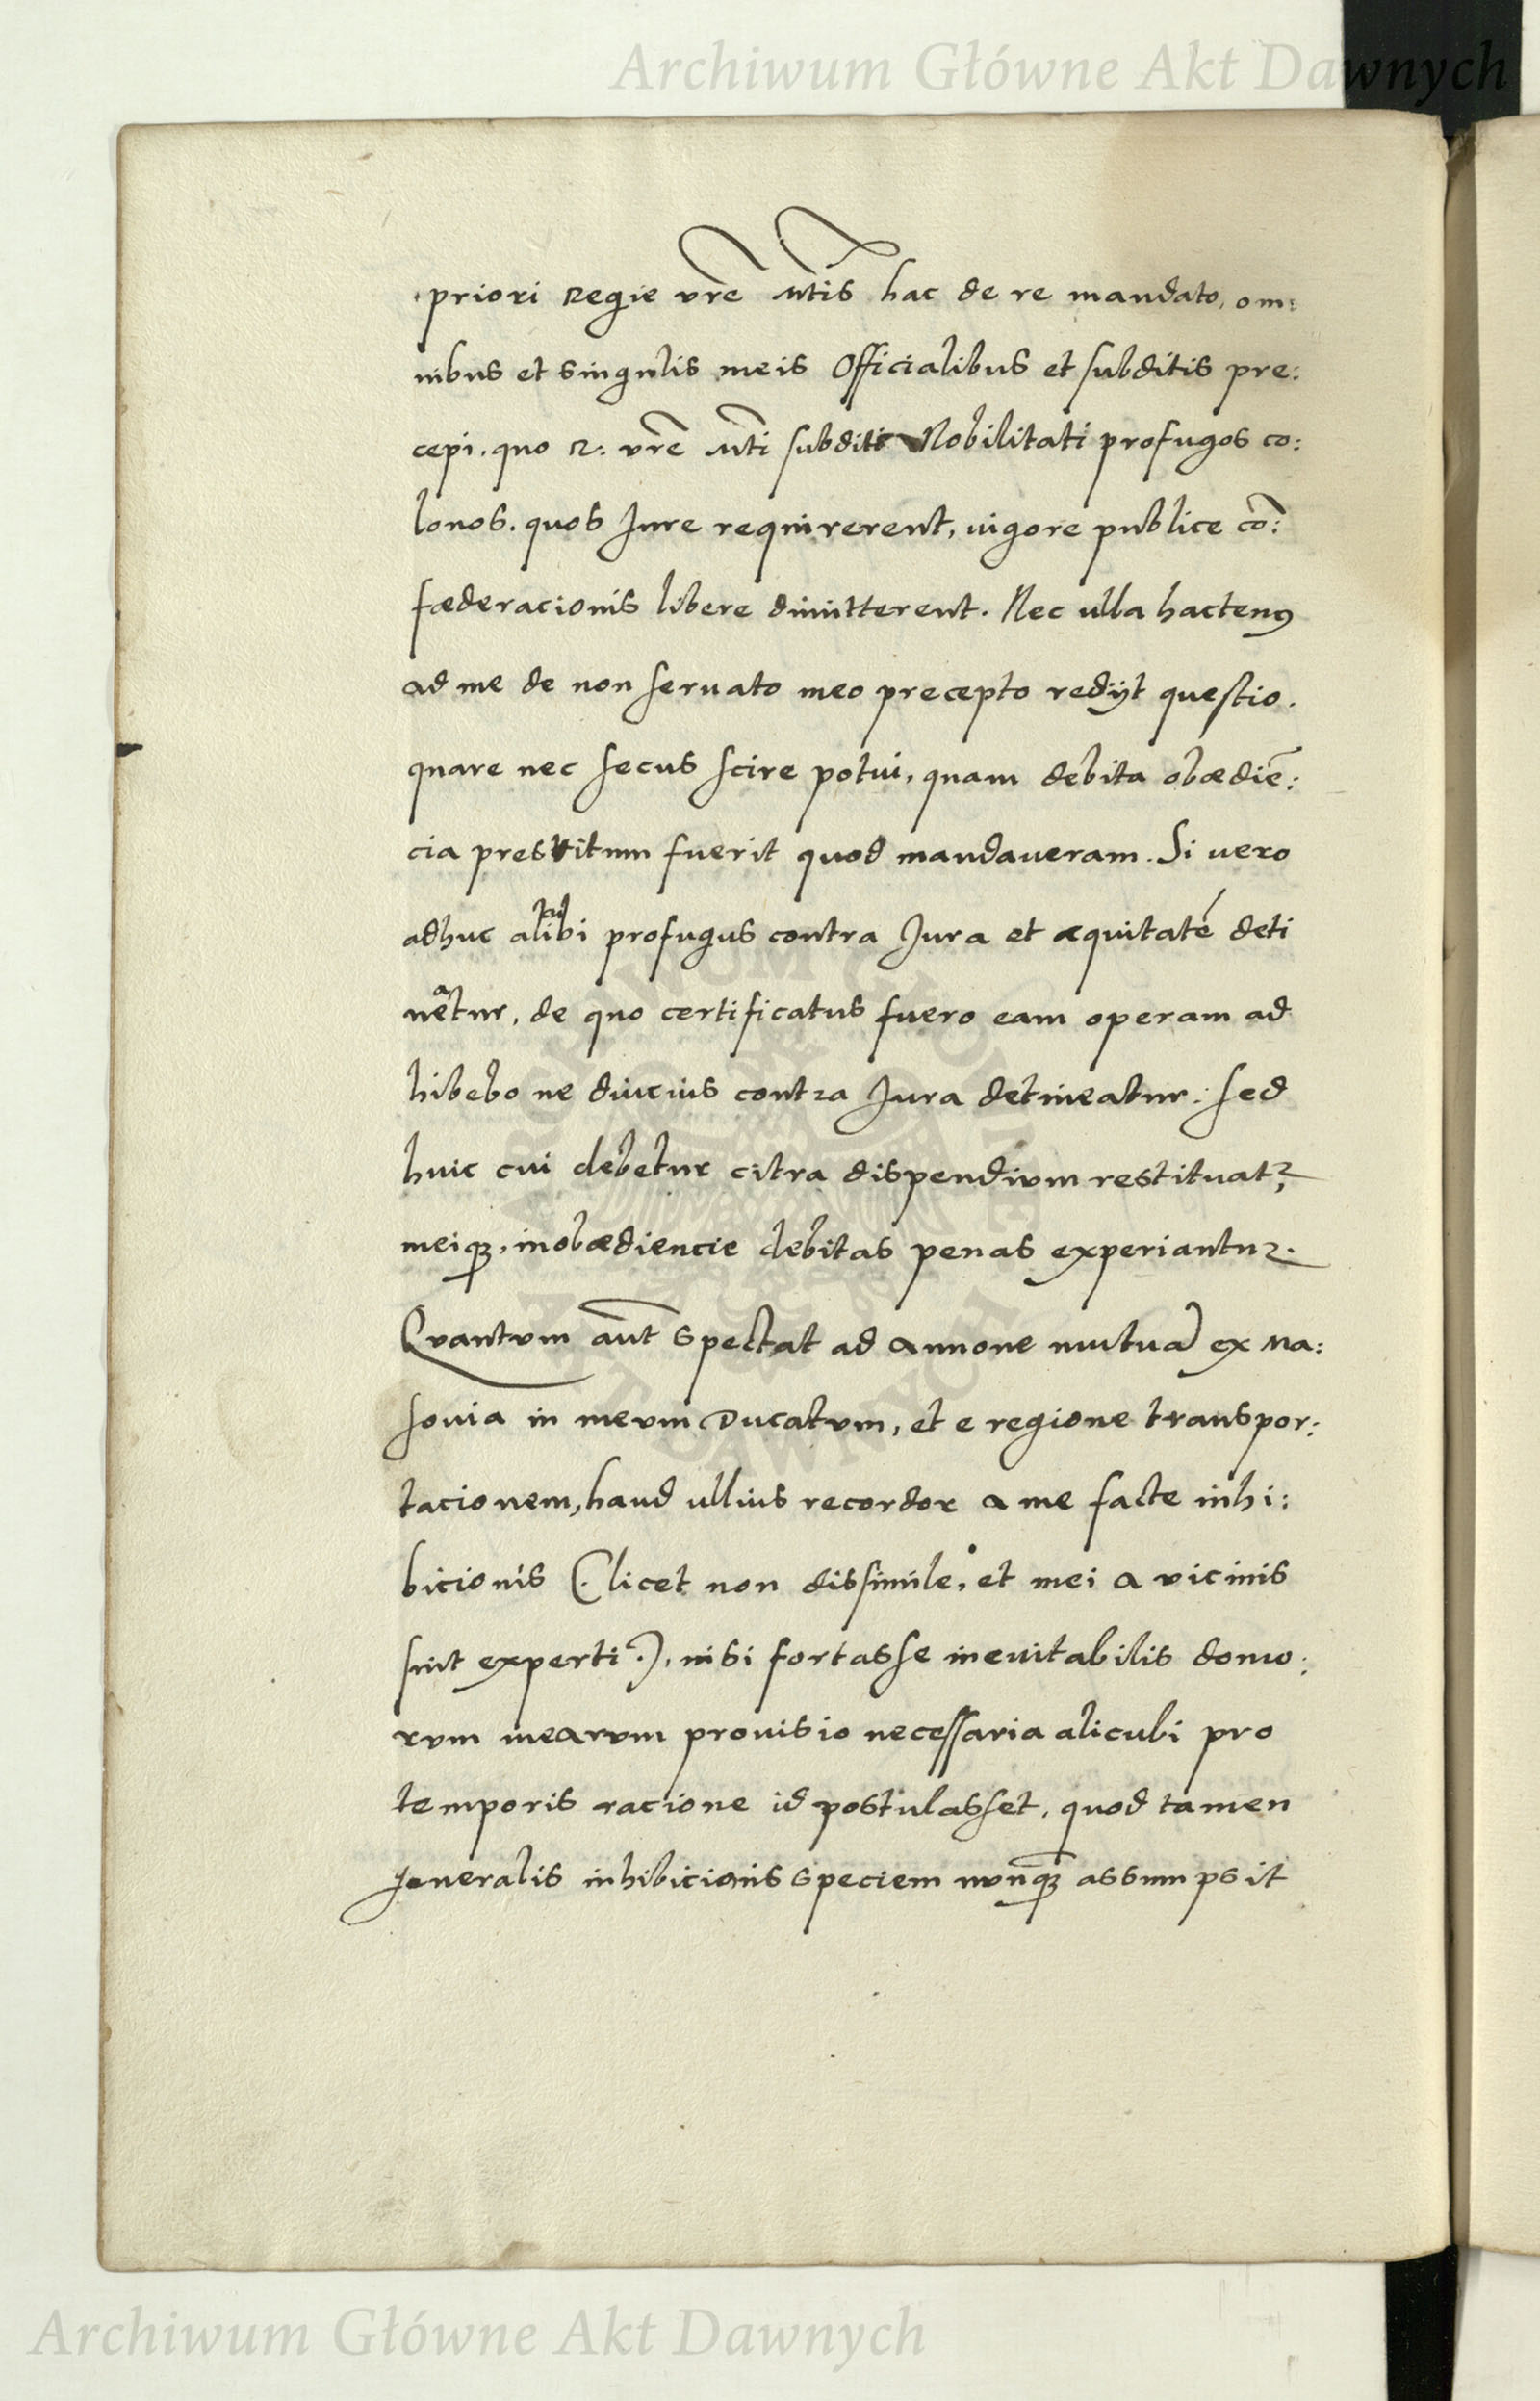 Archiwum Główne Akt Dawnych
priori Regie vrē Mtis hac de re mandato, om:
nibus et singulis meis Officialibus et subditis pre:
cepi. quo R: vrē Mti subditi Nobilitati profugos co:
lonos. quos Jure requirerent, uigore publice cō:
fæderacionis libere dimitterent. Nec ulla hactenꝰ
ad me de non seruato meo precepto redijt questio.
quare nec secus scire potui, quam debita obædiē:
cia prestitum fuerit quod mandaueram. Si vero
adhuc alicubi profugus contra Jura et æquitatē deti
neatur, de quo certificatus fuero eam operam ad
hibebo ne diucius contra Jura detineatur: sed
huic cui debetur citra dispendium restituatr,
meiqꝫ, inobædiencie debitas penas experiantur.
Qvantvm aūt spectat ad annone mutuā ex Ma:
souia in mevm Ducatvm, et e regione transpor:
tacionem, haud ullius recordor a me facte inhi:
bicionis (. licet non dissimile, et mei a vicinis
sint experti .), nisi fortasse ineuitabilis domo:
rvm mearvm prouisio necessaria alicubi pro
temporis racione id postulasset, quod tamen
generalis inhibicionis speciem nvnqꝫ assumpsit
Archiwum Główne Akt Dawnych